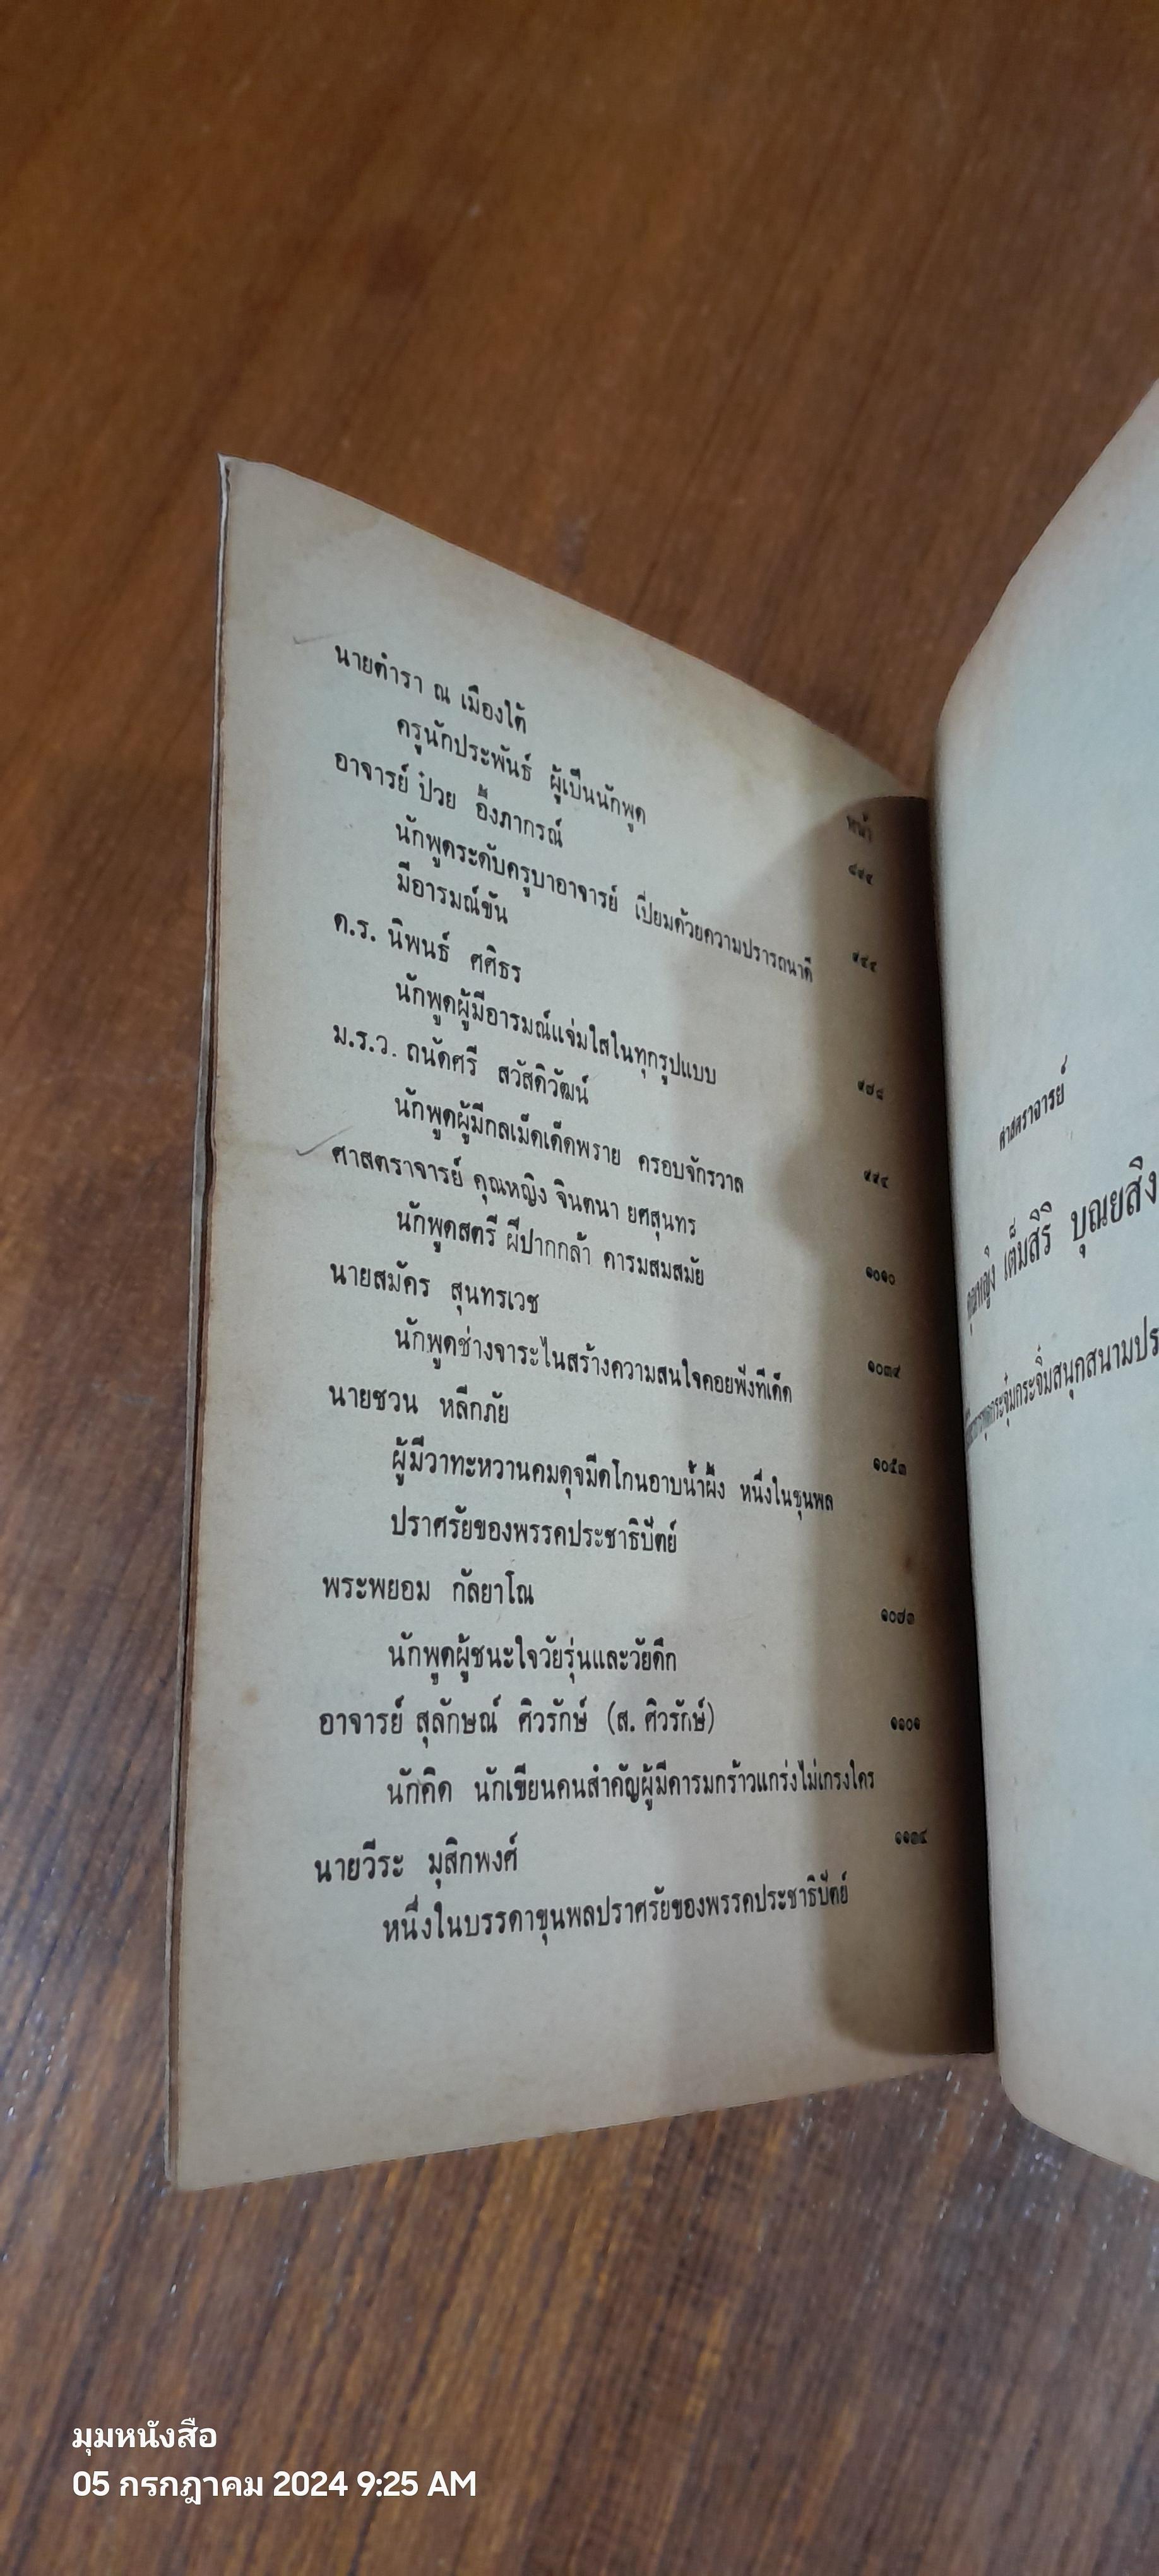 หน้า
นายตำรา ณ เมืองใต้
ครูนักประพันธ์ ผู้เป็นนักพูด
อาจารย์ ป๋วย อึ๊งภากรณ์
นักพูดระดับครูบาอาจารย์ เปี่ยมด้วยความปรารถนาดี
มีอารมณ์ขัน
ด.ร. นิพนธ์ ศศิธร
นักพูดผู้มีอารมณ์แจ่มใสในทุกรูปแบบ
๙๗๘
ม.ร.ว. ถนัดศรี สวัสดิวัฒน์
นักพูดผู้มีกลเม็ดเด็ดพราย ครอบจักรวาล
ศาสตราจารย์ คุณหญิง จินตนา ยศสุนทร
นักพูดสตรี ฝีปากกล้า คารมสมสมัย
๑๐๑๐
นายสมัคร สุนทรเวช
นักพูดช่างจาระไนสร้างความสนใจคอยฟังทีเด็ด
นายชวน หลีกภัย
๑๐๕๓
ผู้มีวาทะหวานคมดุจมีดโกนอาบน้ำผึ้ง หนึ่งในขุนพล
ปราศรัยของพรรคประชาธิปัตย์
พระพยอม กัลยาโณ
๑๐๗๓
นักพูดผู้ชนะใจวัยรุ่นและวัยดึก
อาจารย์ สุลักษณ์ ศิวรักษ์ (ส. ศิวรักษ์)
๑๑๐๑
นักคิด นักเขียนคนสำคัญผู้มีคารมกร้าวแกร่งไม่เกรงใคร
นายวีระ มุสิกพงศ์
หนึ่งในบรรดาขุนพลปราศรัยของพรรคประชาธิปัตย์
ศาสตราจารย์
คุณหญิง เต็มสิริ บุณยสิง
มุมหนังสือ
05 กรกฎาคม 2024 9:25 AM